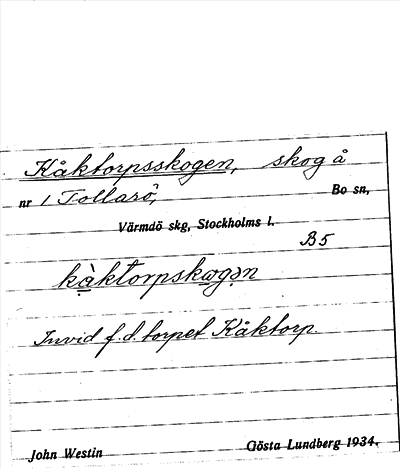 Kåktorpsskogen, skog å
nr 1 Tollarö, Bo sn,
Värmdö skg, Stockholms l.
B5
kå̀ktorpskωgən
Invid f.d. torpet Kåktorp.
John Westin Gösta Lundberg 1934.